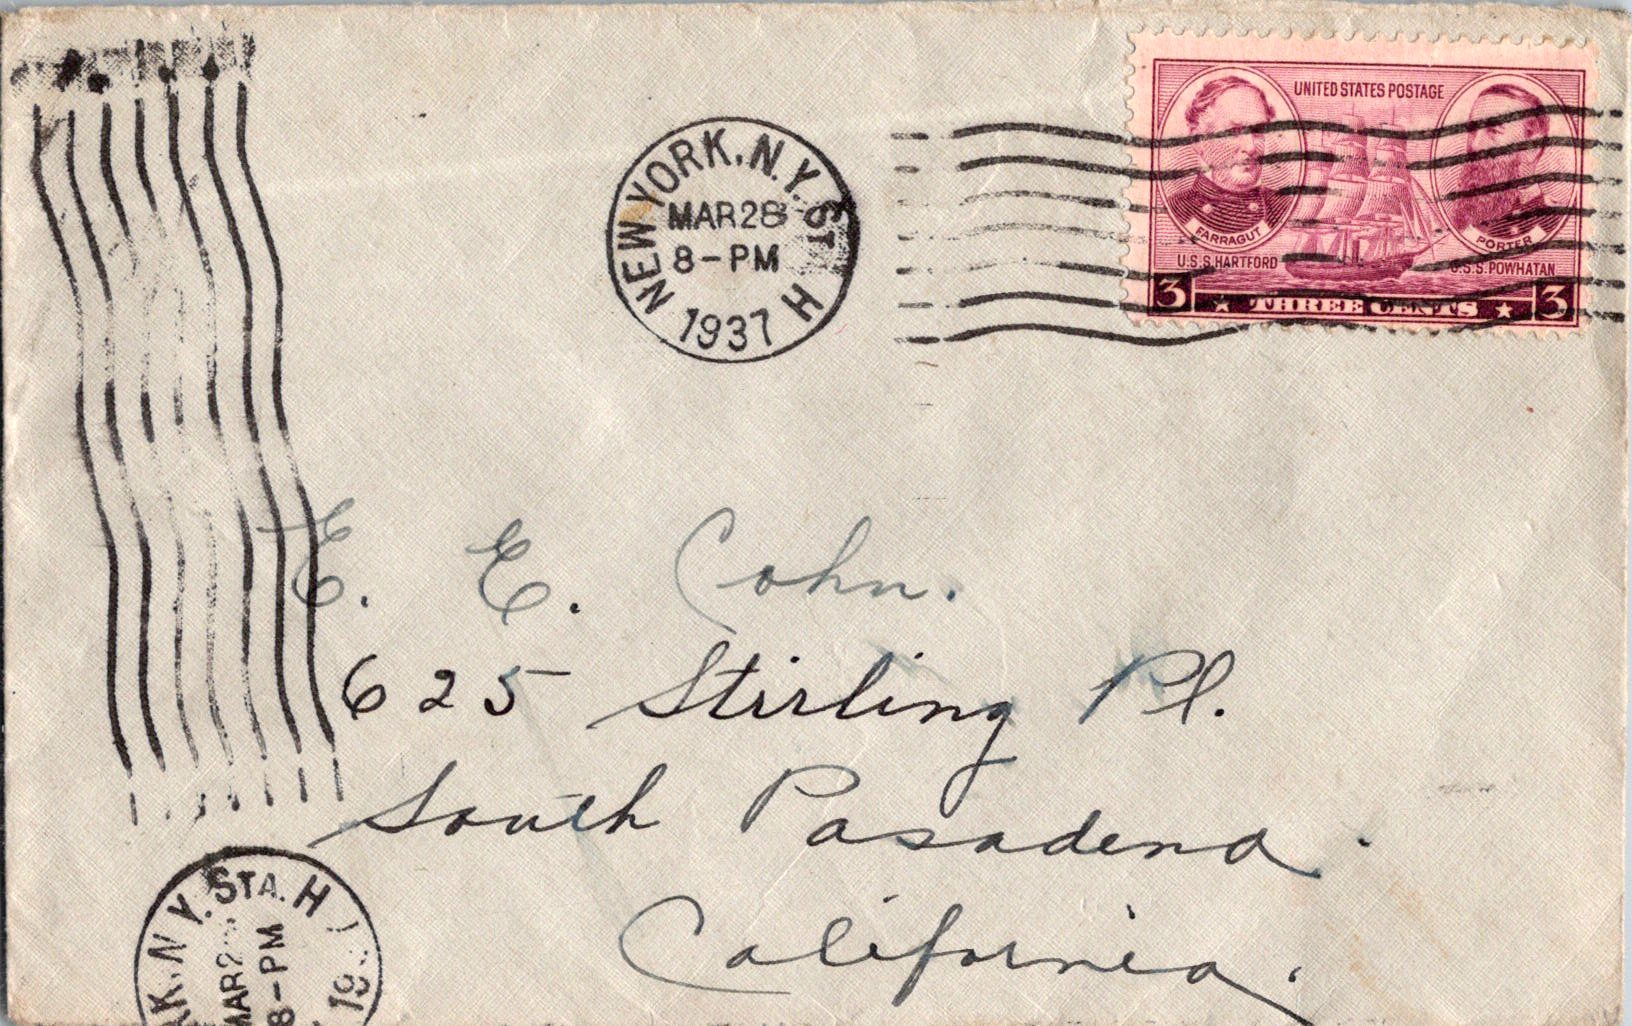 UNITED STATES POSTAGE
FARRAGUT
PORTER
U.S.S. HARTFORD
U.S.S. POWHATAN
3 THREE CENTS 3
NEW YORK, N.Y. STA H
MAR 28
8-PM
1937
E. E. Cohn.
625 Stirling Pl.
South Pasadena
California.
N.Y. STA. H
MAR
8-PM